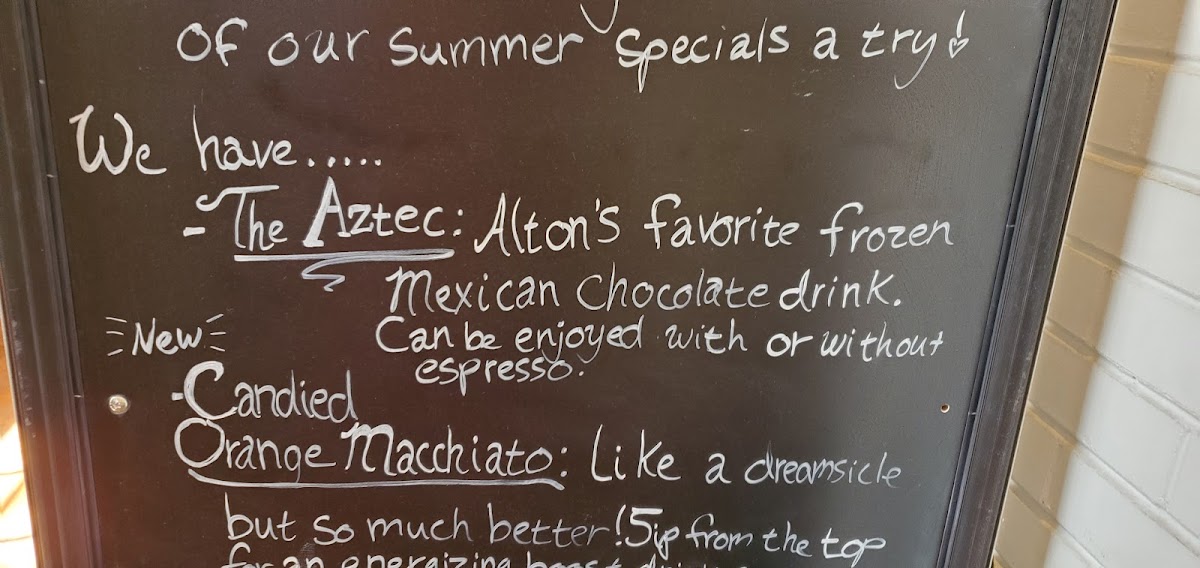 of our summer specials a try!
We have.....
- The Aztec: Alton's favorite frozen
Mexican chocolate drink.
Can be enjoyed with or without
espresso.
New
- Candied
Orange Macchiato: Like a dreamsicle
but so much better! Sip from the top
for an energizing boost